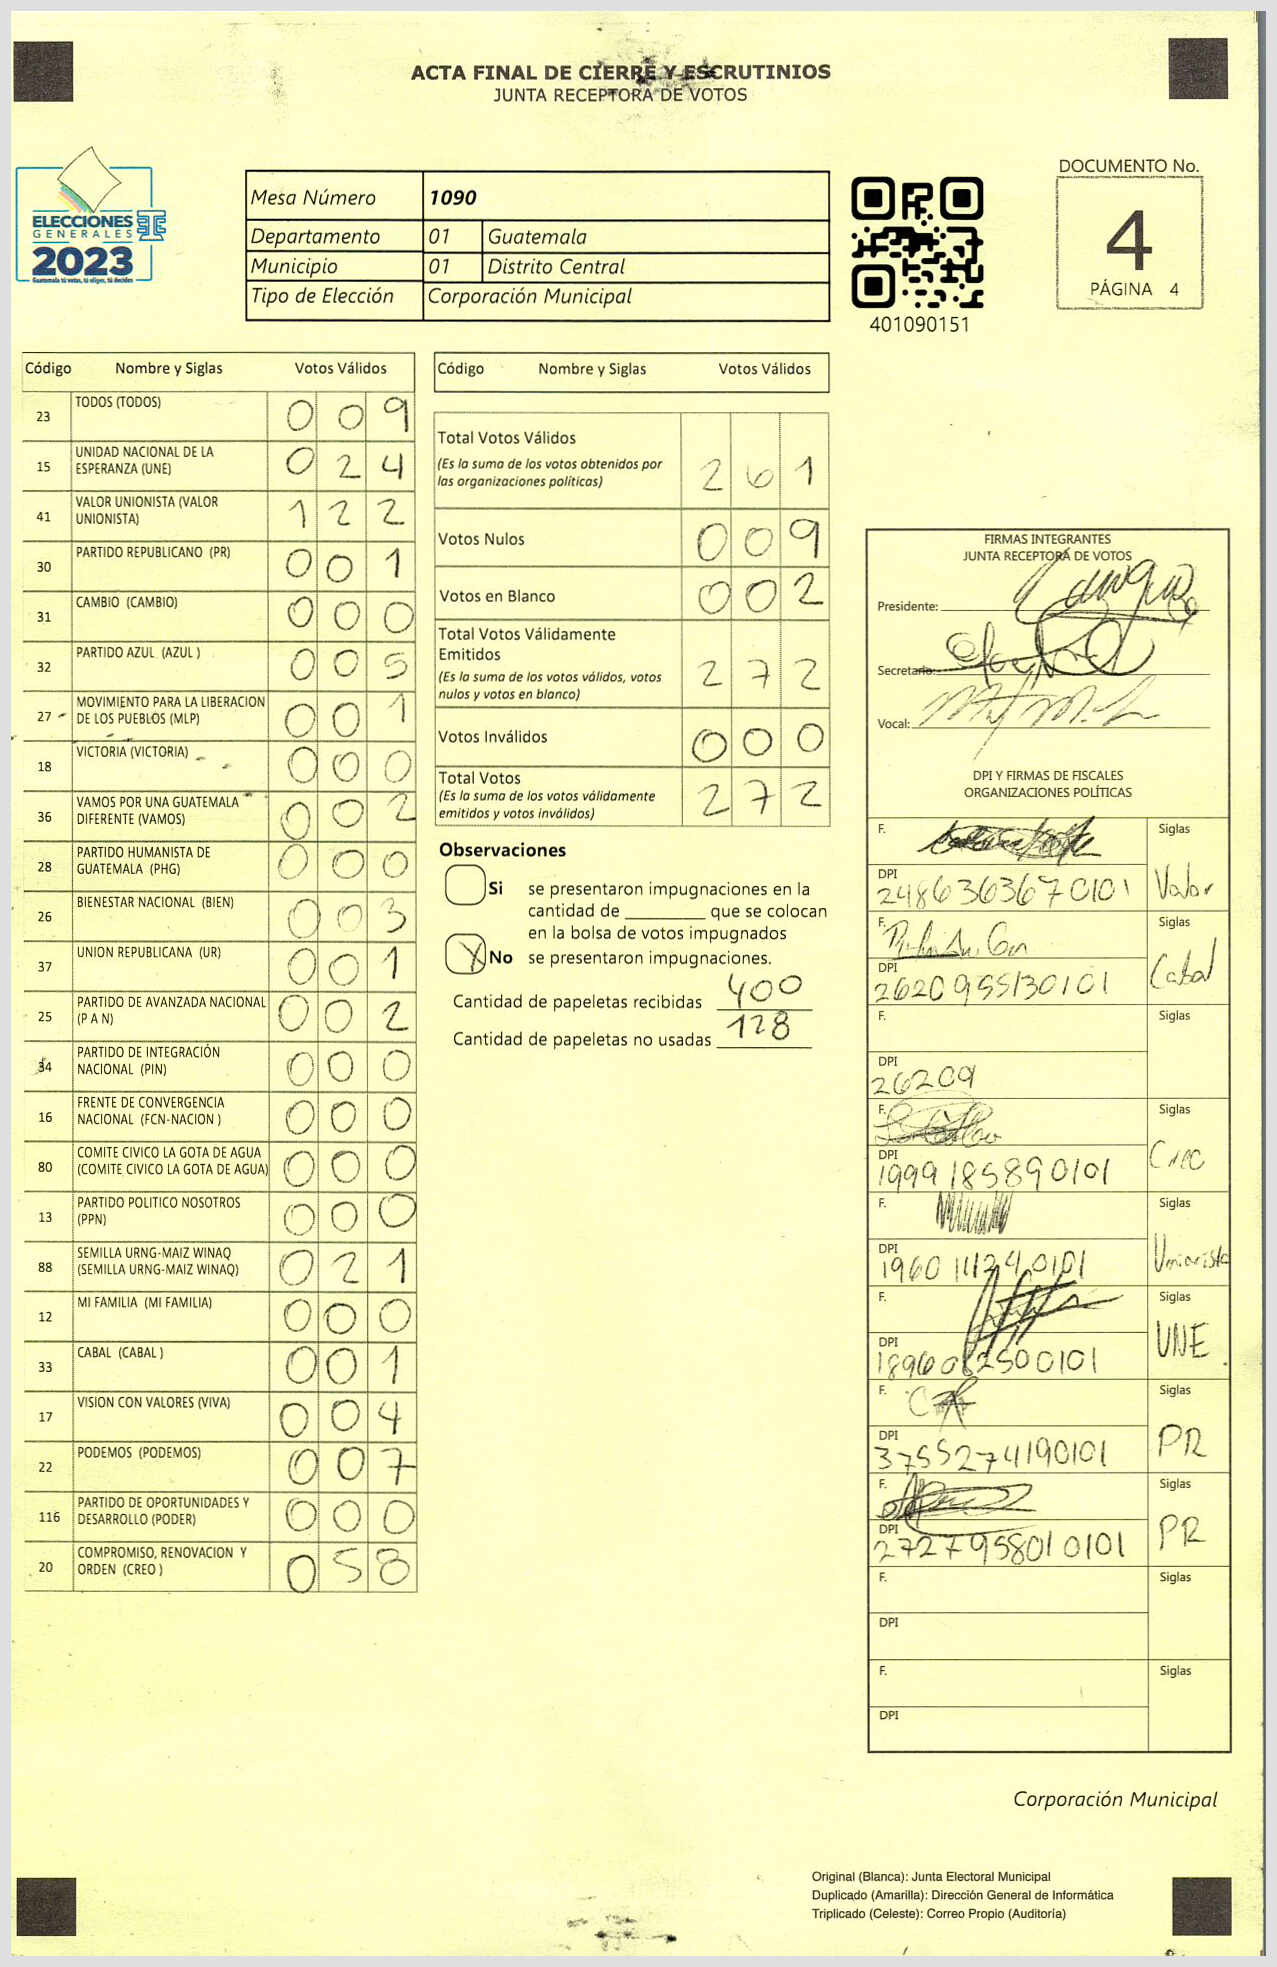 ACTA FINAL DE CIERRE Y ESCRUTINIOS
JUNTA RECEPTORA DE VOTOS
ELECCIONES
GENERALES
2023
Guatemala tú votas, tú eliges, tú decides
Mesa Número 1090
Departamento 01 Guatemala
Municipio 01 Distrito Central
Tipo de Elección Corporación Municipal
401090151
DOCUMENTO No.
4
PÁGINA 4
Código Nombre y Siglas Votos Válidos
23 TODOS (TODOS) 0 0 9
15 UNIDAD NACIONAL DE LA ESPERANZA (UNE) 0 2 4
41 VALOR UNIONISTA (VALOR UNIONISTA) 1 2 2
30 PARTIDO REPUBLICANO (PR) 0 0 1
31 CAMBIO (CAMBIO) 0 0 0
32 PARTIDO AZUL (AZUL ) 0 0 5
27 MOVIMIENTO PARA LA LIBERACION DE LOS PUEBLOS (MLP) 0 0 1
18 VICTORIA (VICTORIA) 0 0 0
36 VAMOS POR UNA GUATEMALA DIFERENTE (VAMOS) 0 0 2
28 PARTIDO HUMANISTA DE GUATEMALA (PHG) 0 0 0
26 BIENESTAR NACIONAL (BIEN) 0 0 3
37 UNION REPUBLICANA (UR) 0 0 1
25 PARTIDO DE AVANZADA NACIONAL (P A N) 0 0 2
34 PARTIDO DE INTEGRACIÓN NACIONAL (PIN) 0 0 0
16 FRENTE DE CONVERGENCIA NACIONAL (FCN-NACION ) 0 0 0
80 COMITE CIVICO LA GOTA DE AGUA (COMITE CIVICO LA GOTA DE AGUA) 0 0 0
13 PARTIDO POLITICO NOSOTROS (PPN) 0 0 0
88 SEMILLA URNG-MAIZ WINAQ (SEMILLA URNG-MAIZ WINAQ) 0 2 1
12 MI FAMILIA (MI FAMILIA) 0 0 0
33 CABAL (CABAL ) 0 0 1
17 VISION CON VALORES (VIVA) 0 0 4
22 PODEMOS (PODEMOS) 0 0 7
116 PARTIDO DE OPORTUNIDADES Y DESARROLLO (PODER) 0 0 0
20 COMPROMISO, RENOVACION Y ORDEN (CREO ) 0 5 8
Código Nombre y Siglas Votos Válidos
Total Votos Válidos 2 6 1
(Es la suma de los votos obtenidos por
las organizaciones políticas)
Votos Nulos 0 0 9
Votos en Blanco 0 0 2
Total Votos Válidamente
Emitidos 2 7 2
(Es la suma de los votos válidos, votos
nulos y votos en blanco)
Votos Inválidos 0 0 0
Total Votos 2 7 2
(Es la suma de los votos válidamente
emitidos y votos inválidos)
Observaciones
Si se presentaron impugnaciones en la
cantidad de ________ que se colocan
en la bolsa de votos impugnados
X No se presentaron impugnaciones.
Cantidad de papeletas recibidas 400
Cantidad de papeletas no usadas 128
FIRMAS INTEGRANTES
JUNTA RECEPTORA DE VOTOS
Presidente:
Secretario:
Vocal:
DPI Y FIRMAS DE FISCALES
ORGANIZACIONES POLÍTICAS
F. Siglas
DPI 2486363670101 Valor
F. Siglas
DPI 2620955130101 Cabal
F. Siglas
DPI 26209
F. Siglas
DPI 1999185890101 Creo
F. Siglas
DPI 1960111240101 Unionista
F. Siglas
DPI 1896082500101 UNE
F. Siglas
DPI 3755274190101 PR
F. Siglas
DPI 2727958010101 PR
F. Siglas
DPI
F. Siglas
DPI
Corporación Municipal
Original (Blanca): Junta Electoral Municipal
Duplicado (Amarilla): Dirección General de Informática
Triplicado (Celeste): Correo Propio (Auditoría)